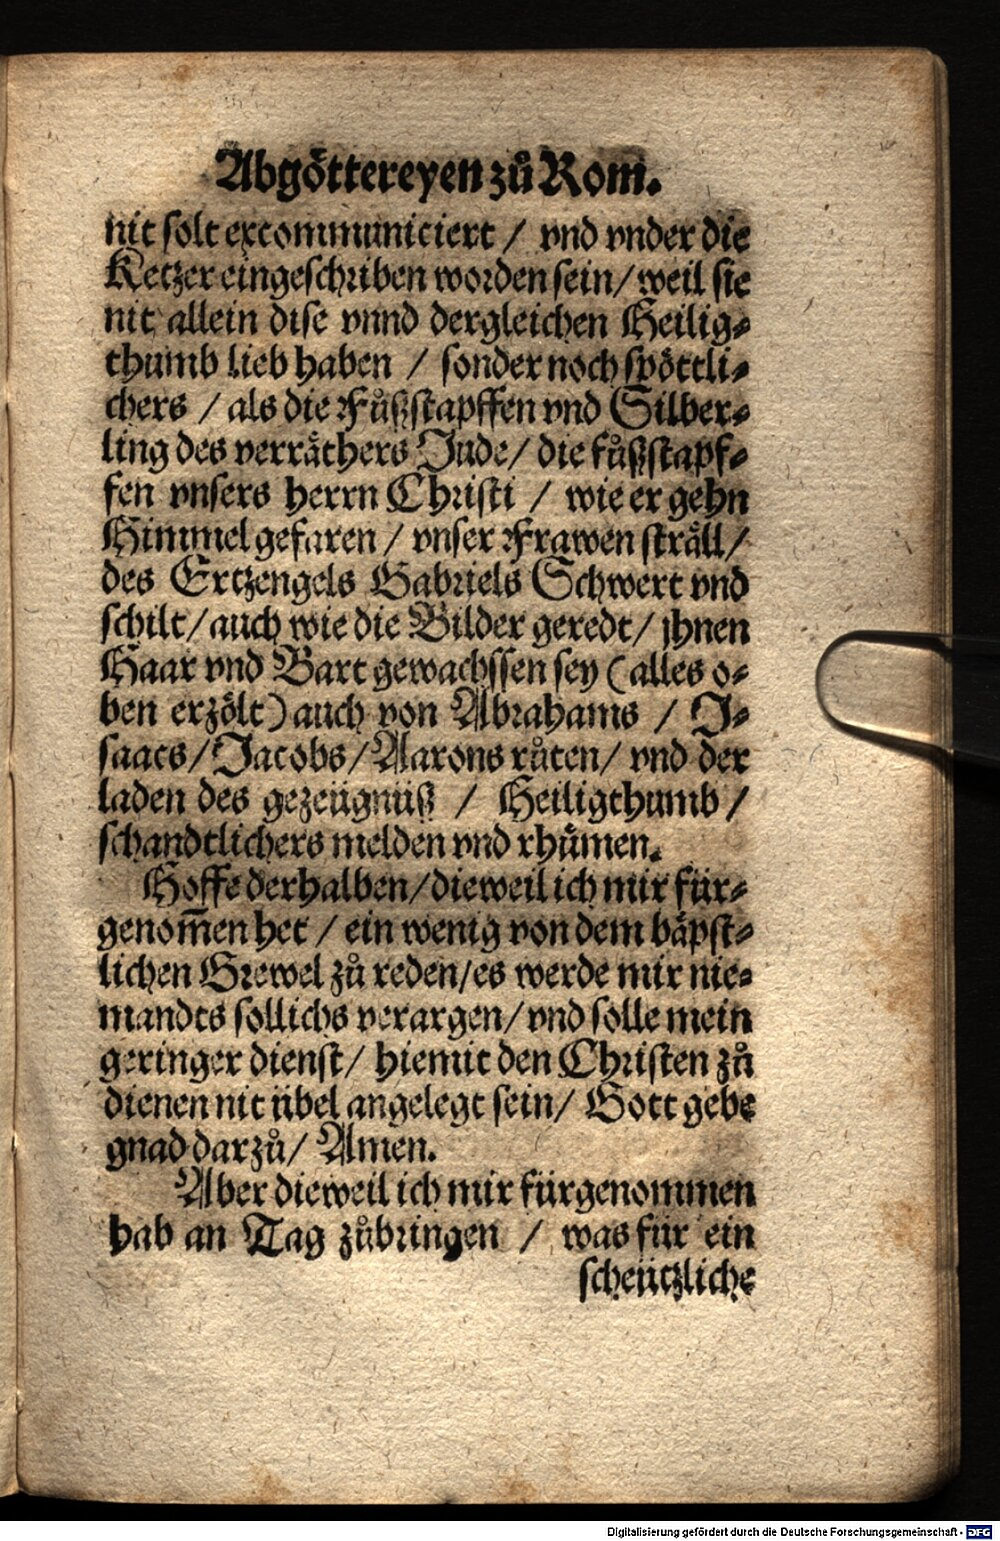 Abgöttereyen zů Rom.
nit solt excommuniciert / vnd vnder die
Ketzer eingeschriben worden sein / weil sie
nit allein dise vnnd dergleichen Heilig⸗
thumb lieb haben / sonder noch spöttli⸗
chers / als die Fůßstapffen vnd Silber⸗
ling des verräthers Jude / die fůßstapf⸗
fen vnsers herrn Christi / wie er gehn
Himmel gefaren / vnser Frawen sträll /
des Ertzengels Gabriels Schwert vnd
schilt / auch wie die Bilder geredt / jhnen
Haar vnd Bart gewachssen sey (alles o⸗
ben erzölt) auch von Abrahams / J⸗
saacs / Jacobs / Aarons růten / vnd der
laden des gezeügnüß / Heiligthumb /
schandtlichers melden vnd rhůmen.
Hoffe derhalben / dieweil ich mir für⸗
genom̃en het / ein wenig von dem bäpst⸗
lichen Grewel zů reden / es werde mir nie⸗
mandts sollichs verargen / vnd solle mein
geringer dienst / hiemit den Christen zů
dienen nit übel angelegt sein / Gott gebe
gnad darzů / Amen.
Aber dieweil ich mir fürgenommen
hab an Tag zůbringen / was für ein
scheützliche
Digitalisierung gefördert durch die Deutsche Forschungsgemeinschaft - DFG